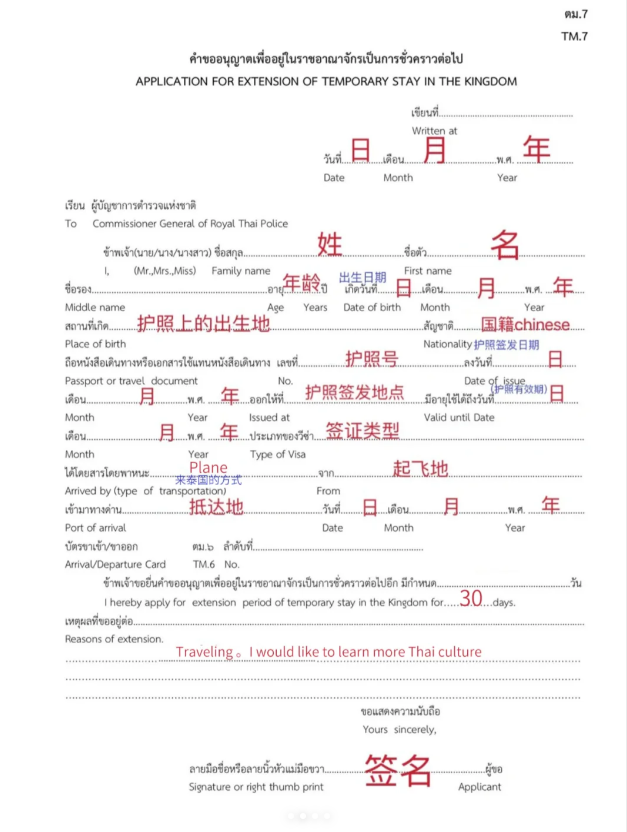 ตม.7
TM.7
คำขออนุญาตเพื่ออยู่ในราชอาณาจักรเป็นการชั่วคราวต่อไป
APPLICATION FOR EXTENSION OF TEMPORARY STAY IN THE KINGDOM
เขียนที่
Written at
วันที่ 日 เดือน 月 พ.ศ. 年
Date Month Year
เรียน ผู้บัญชาการตำรวจแห่งชาติ
To Commissioner General of Royal Thai Police
ข้าพเจ้า(นาย/นาง/นางสาว) ชื่อสกุล 姓 ชื่อตัว 名
I, (Mr.,Mrs.,Miss) Family name First name
出生日期
ชื่อรอง อายุ 年龄 ปี เกิดวันที่ 日 เดือน 月 พ.ศ. 年
Middle name Age Years Date of birth Month Year
สถานที่เกิด 护照上的出生地 สัญชาติ 国籍chinese
Place of birth Nationality 护照签发日期
ถือหนังสือเดินทางหรือเอกสารใช้แทนหนังสือเดินทาง เลขที่ 护照号 ลงวันที่ 日
Passport or travel document No. Date of issue
(护照有效期)
เดือน 月 พ.ศ. 年 ออกให้ที่ 护照签发地点 มีอายุใช้ได้ถึงวันที่ 日
Month Year Issued at Valid until Date
เดือน 月 พ.ศ. 年 ประเภทของวีซ่า 签证类型
Month Year Type of Visa
ได้โดยสารโดยพาหนะ Plane จาก 起飞地
来泰国的方式
Arrived by (type of transportation) From
เข้ามาทางด่าน 抵达地 วันที่ 日 เดือน 月 พ.ศ. 年
Port of arrival Date Month Year
บัตรขาเข้า/ขาออก ตม.๖ ลำดับที่
Arrival/Departure Card TM.6 No.
ข้าพเจ้าขอยื่นคำขออนุญาตเพื่ออยู่ในราชอาณาจักรเป็นการชั่วคราวต่อไปอีก มีกำหนด วัน
I hereby apply for extension period of temporary stay in the Kingdom for 30 days.
เหตุผลที่ขออยู่ต่อ
Reasons of extension.
Traveling。I would like to learn more Thai culture
ขอแสดงความนับถือ
Yours sincerely,
ลายมือชื่อหรือลายนิ้วหัวแม่มือขวา 签名 ผู้ขอ
Signature or right thumb print Applicant